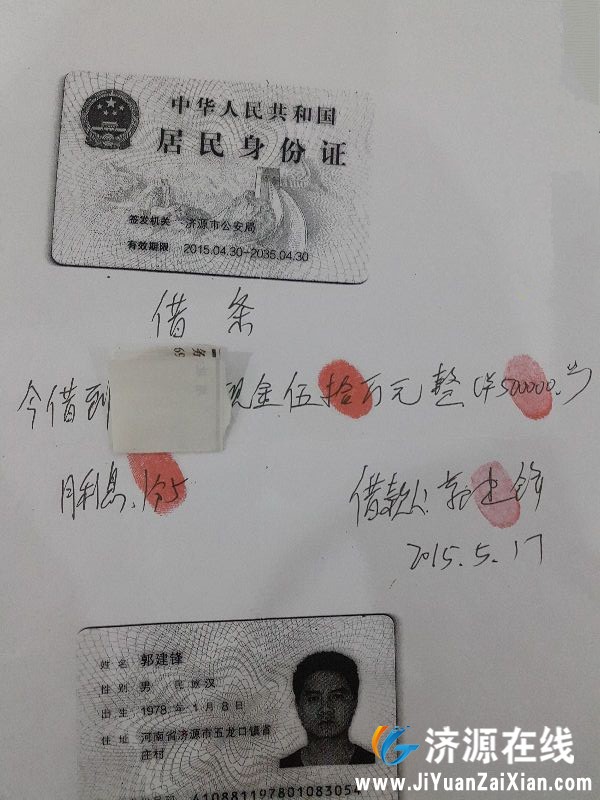 中华人民共和国
居民身份证
签发机关 济源市公安局
有效期限 2015.04.30-2035.04.30
借条
今借到 现金伍拾万元整(¥500000.00)
月利息:1分5
借款人:郭建锋
2015.5.17
姓名 郭建锋
性别 男 民族 汉
出生 1978年1月8日
住址 河南省济源市五龙口镇省
庄村
410881197801083054
济源在线
www.JiYuanZaiXian.com